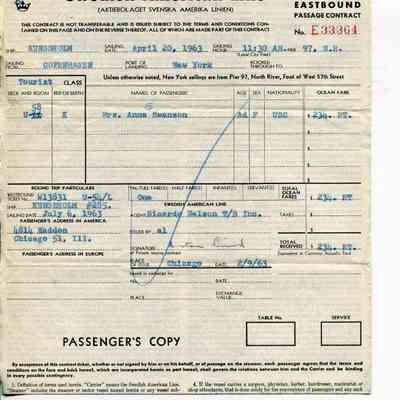 (AKTIEBOLAGET SVENSKA AMERIKA LINIEN)
EASTBOUND
PASSAGE CONTRACT
THIS CONTRACT IS NOT TRANSFERABLE AND IS ISSUED SUBJECT TO THE TERMS AND CONDITIONS CON-
TAINED ON THIS PAGE AND ON THE REVERSE THEREOF, ALL OF WHICH ARE MADE PART OF THIS CONTRACT
No. E33364
SHIP KUNGSHOLM SAILING DATE April 20, 1963 SAILING HOUR 11:30 AM. PIER 97, N.R.
SAILING TO COPENHAGEN PORT OF LANDING New York BOOKED THROUGH TO
Tourist CLASS Unless otherwise noted, New York sailings are from Pier 97, North River, Foot of West 57th Street
DECK AND ROOM REF. OF BERTH NAME(S) OF PASSENGER AGE SEX NATIONALITY OCEAN FARE
58
K Mrs. Anna Swanson Ad F USC $ 234. RT
ROUND TRIP PARTICULARS No. FULL FARE(S) HALF FARE(S) INFANT(S) SERVANT(S) TOTAL OCEAN FARES $ 234. RT
WESTBOUND TICKET No. W13831 U-54/L One
SHIP KUNGSHOLM $285. SWEDISH AMERICAN LINE
SAILING DATE July 6, 1963 Agent Sicardo Nelson T/B Inc. TAXES $
PASSENGER'S ADDRESS IN AMERICA
4814 Madden ISSUED BY al
Chicago 51, Ill. SIGNATURE of Person named contract TOTAL RECEIVED $ 234. RT
Equivalent in Currency Actually Paid
PASSENGER'S ADDRESS IN EUROPE PLACE OF ISSUE Chicago DATE 2/9/63
Issued in exchange for
No. DATE
PLACE EXCHANGE VALUE
TABLE No. SERVICE
PASSENGER'S COPY
By acceptance of this contract ticket, whether or not signed by him or on his behalf, or of passage on the steamer, each passenger agrees that the terms and
conditions on the face and back hereof, which are incorporated herein as part hereof, shall govern the relations between him and the Carrier and be binding
in every possible contingency.
1. Definition of terms used herein. "Carrier" means the Swedish American Line.
4. If the vessel carries a surgeon, physician, barber, hairdresser, manicurist or